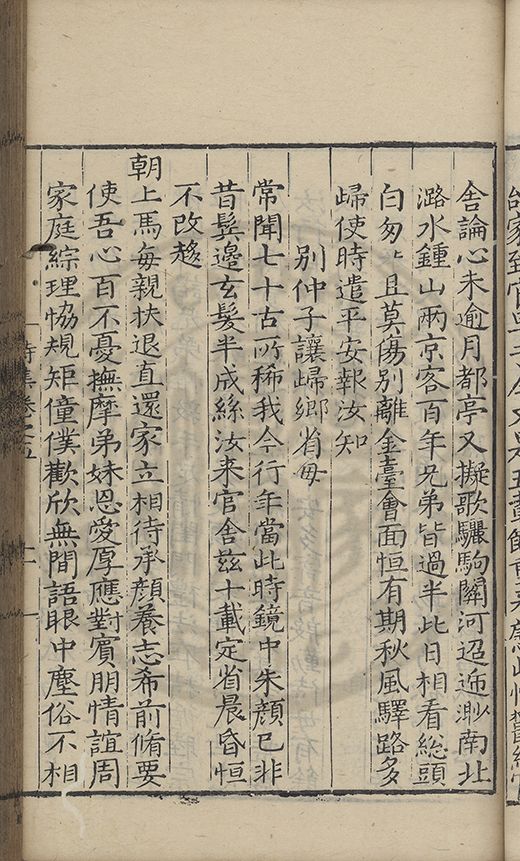 舎論心未逾月都亭又擬歌驪駒關河迢逓渺南北
潞水鍾山兩京客百年兄弟皆過半此日相看総頭
白匆〻且莫傷別離金臺會面恒有期秋風驛路多
歸使時遣平安報汝知
別仲子讓歸鄉省母
常聞七十古所稀我今行年當此時鏡中朱顏已非
昔髩邊玄髮半成絲汝来官舎玆十載定省晨昏恒
不改趍
朝上馬每親扶退直還家立相待承顏養志希前脩要
使吾心百不憂撫摩弟妹恩愛厚應對賓朋情誼周
家庭綜理恊規矩僮僕歡欣無間語眼中塵俗不相